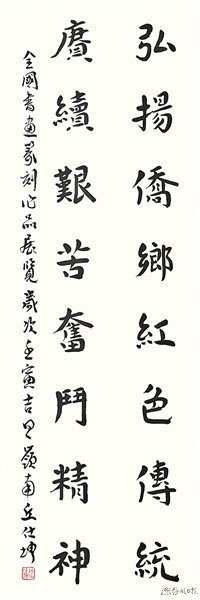 弘揚僑鄉紅色傳統
賡續艱苦奮鬥精神
全國書畫篆刻作品展覽歲次壬寅吉日嶺南丘仕坤